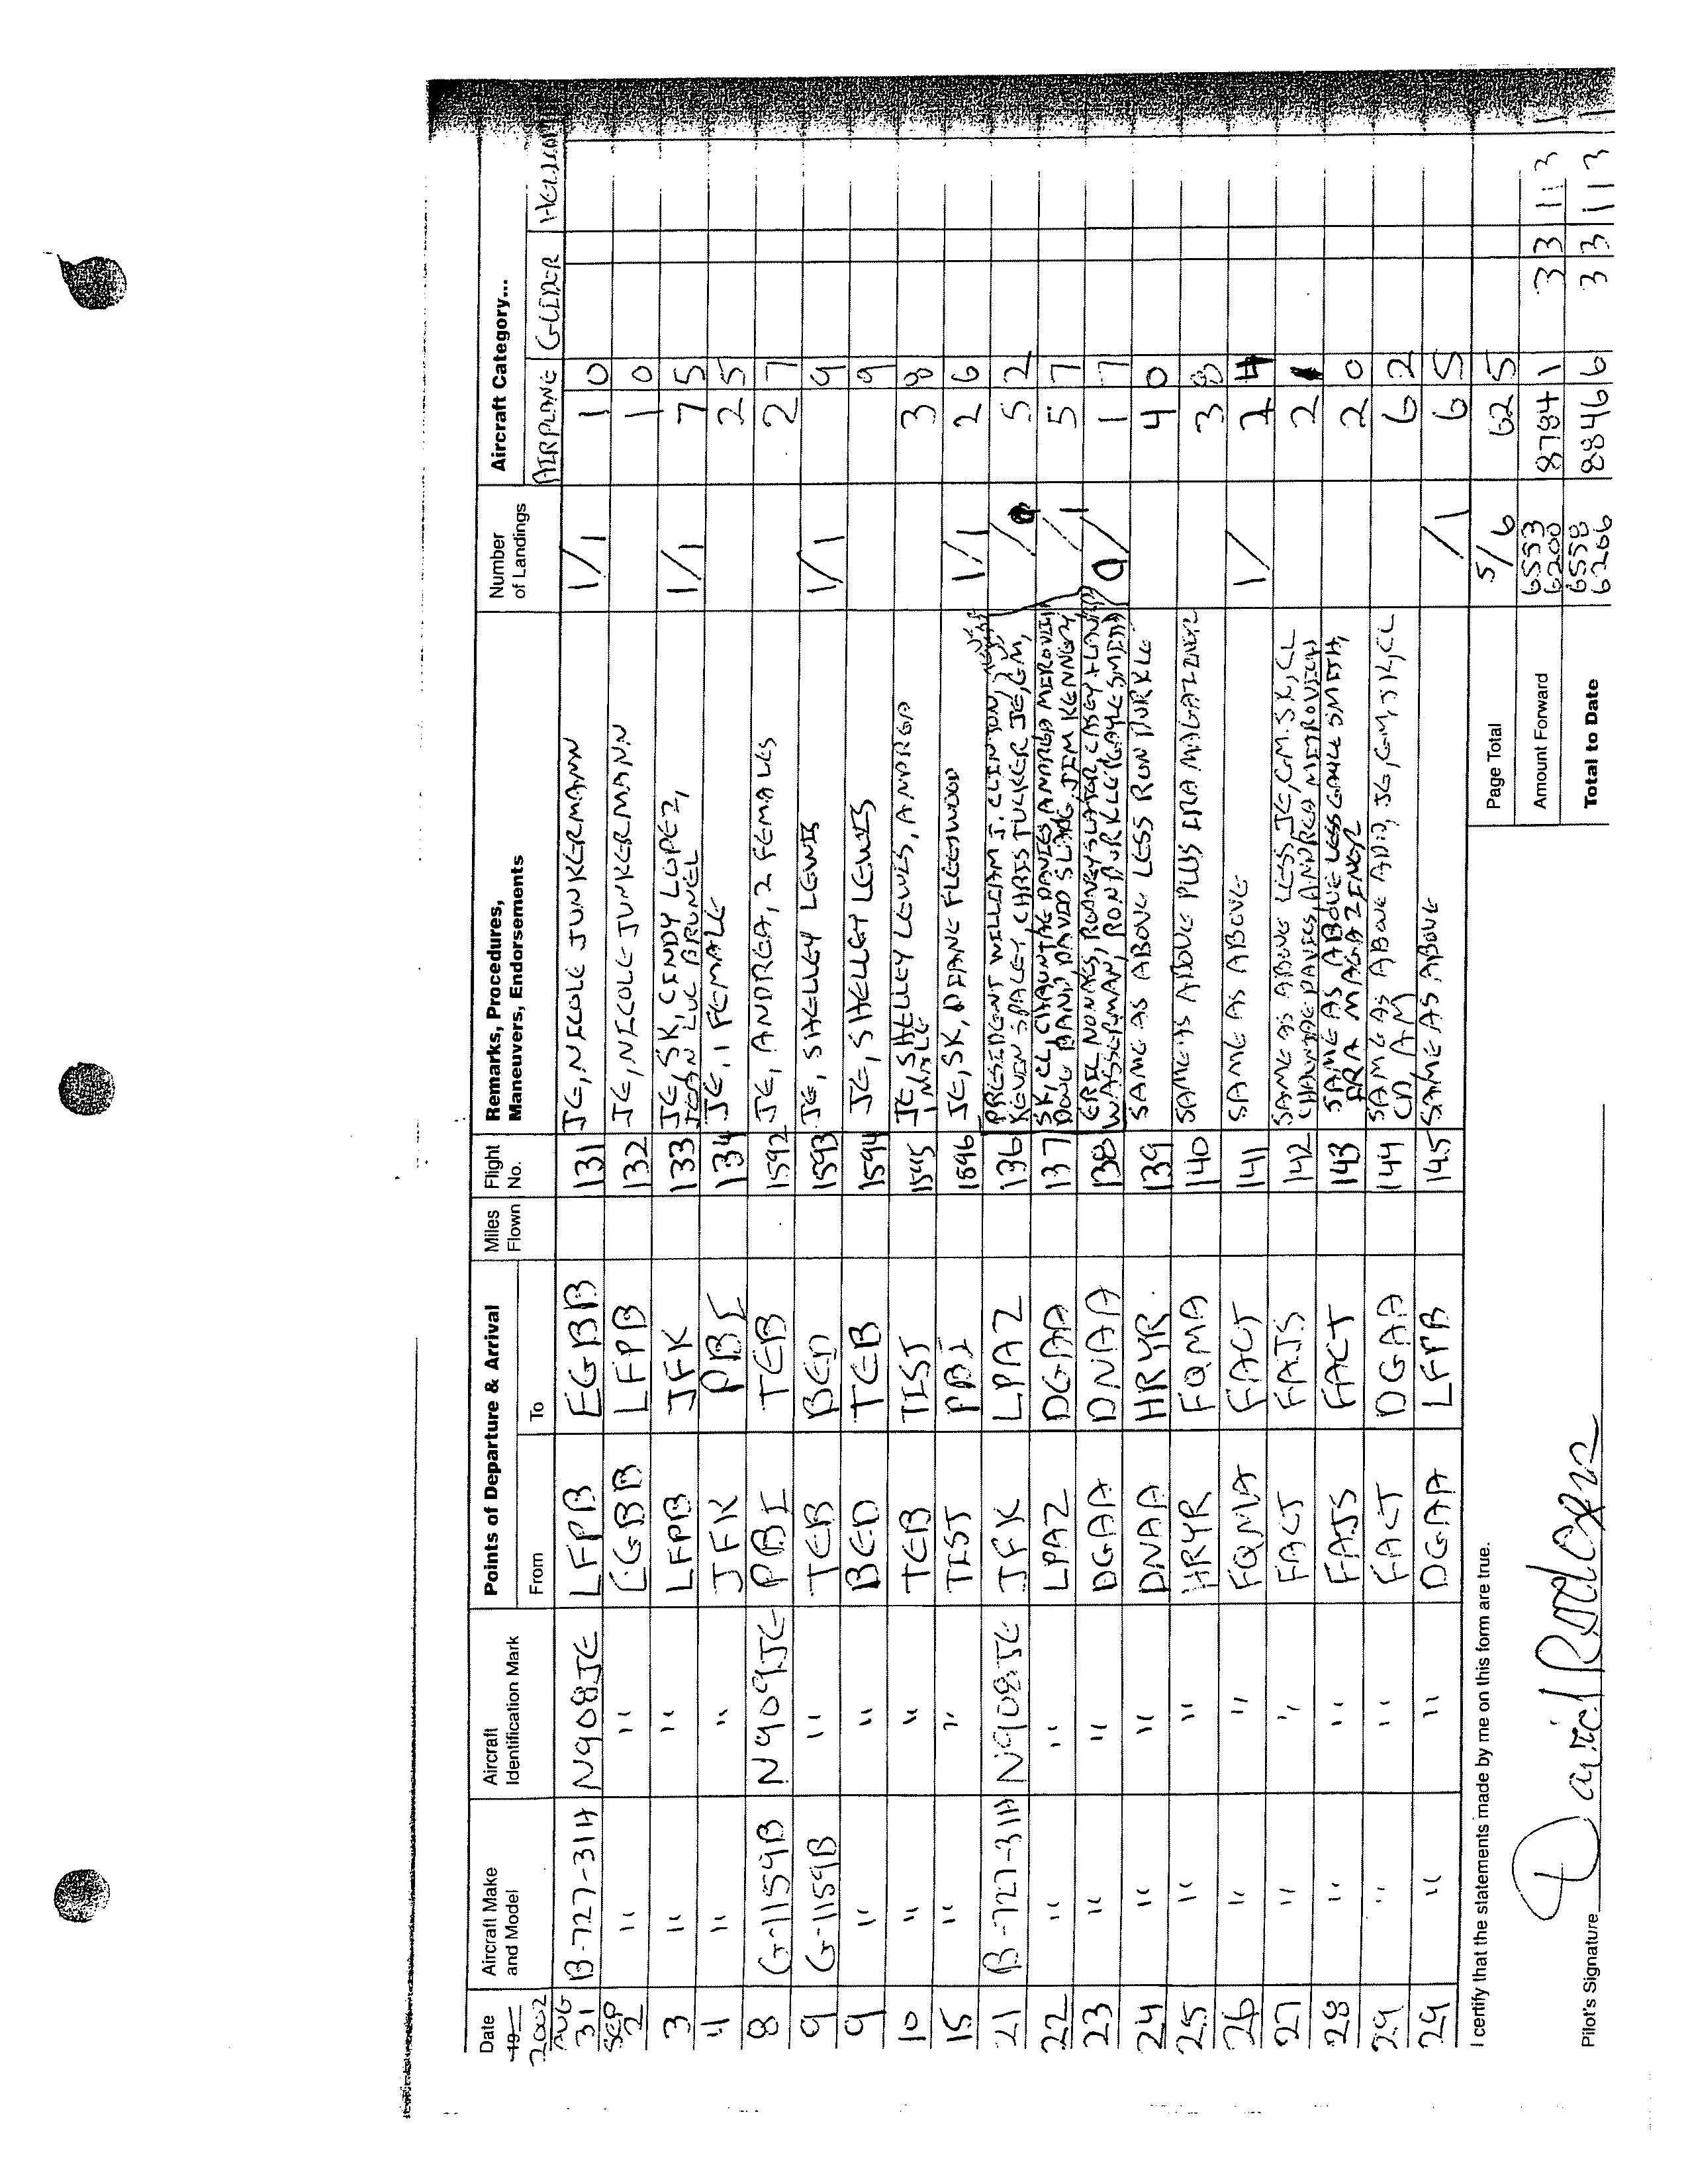 Date Aircraft Make and Model Aircraft Identification Mark Points of Departure & Arrival Miles Flown Flight No. Remarks, Procedures, Maneuvers, Endorsements Number of Landings Aircraft Category...
19 2002 From To AIRPLANE GLIDER
AUG 31 B-727-31H N908JE LFPB EGBB 131 JE, NICOLE JUNKERMANN 1/1 1 0
SEP 2 " " EGBB LFPB 132 JE, NICOLE JUNKERMANN 1 0
3 " " LFPB JFK 133 JE, SK, CINDY LOPEZ, JEAN LUC BRUNEL 1/1 7 5
4 " " JFK PBI 134 JE, 1 FEMALE 2 5
8 G-1159B N909JE PBI TEB 1592 JE, ANDREA, 2 FEMALES 2 7
9 G-1159B " TEB BED 1593 JE, SHELLEY LEWIS 1/1 9
9 " " BED TEB 1594 JE, SHELLEY LEWIS 9
10 " " TEB TIST 1595 JE, SHELLEY LEWIS, ANDREA 1 MALE 3 8
15 " " TIST PBI 1596 JE, SK, DIANE FLEESWOOD 1/1 2 6
21 B-727-31H N908JE JFK LPAZ 136 PRESIDENT WILLIAM J. CLINTON, KEVIN SPACEY, CHRIS TUCKER JE, GM, 5 2
22 " " LPAZ DGAA 137 SK, CL, CHAUNTAE DAVIES, ANDREA MITROVICH DOUG BAND, DAVID SLANG, JIM KENNEY, /1 5 7
23 " " DGAA DNAA 138 ERIC NONACS, RODNEY SLATER, CASEY WASSERMAN, RON BURKLE, GAYLE SMITH 1 7
24 " " DNAA HRYR 139 SAME AS ABOVE LESS RON BURKLE 4 0
25 " " HRYR FQMA 140 SAME AS ABOVE PLUS IRA MAGAZINER 3 8
26 " " FQMA FACT 141 SAME AS ABOVE 1/ 2 4
27 " " FACT FAJS 142 SAME AS ABOVE LESS, JE, GM, SK, CL CHAUNTAE DAVIES, ANDREA MITROVICH 2 1
28 " " FAJS FACT 143 SAME AS ABOVE LESS GAYLE SMITH, IRA MAGAZINER 2 0
29 " " FACT DGAA 144 SAME AS ABOVE ADD, JE, GM, SK, CL CD, AM 6 2
29 " " DGAA LFPB 145 SAME AS ABOVE /1 6 5
I certify that the statements made by me on this form are true.
Page Total 5/6 62 5
Amount Forward 6553 6200 8784 1 33 113
Pilot's Signature David Rodgers
Total to Date 6558 6206 8846 6 33 113